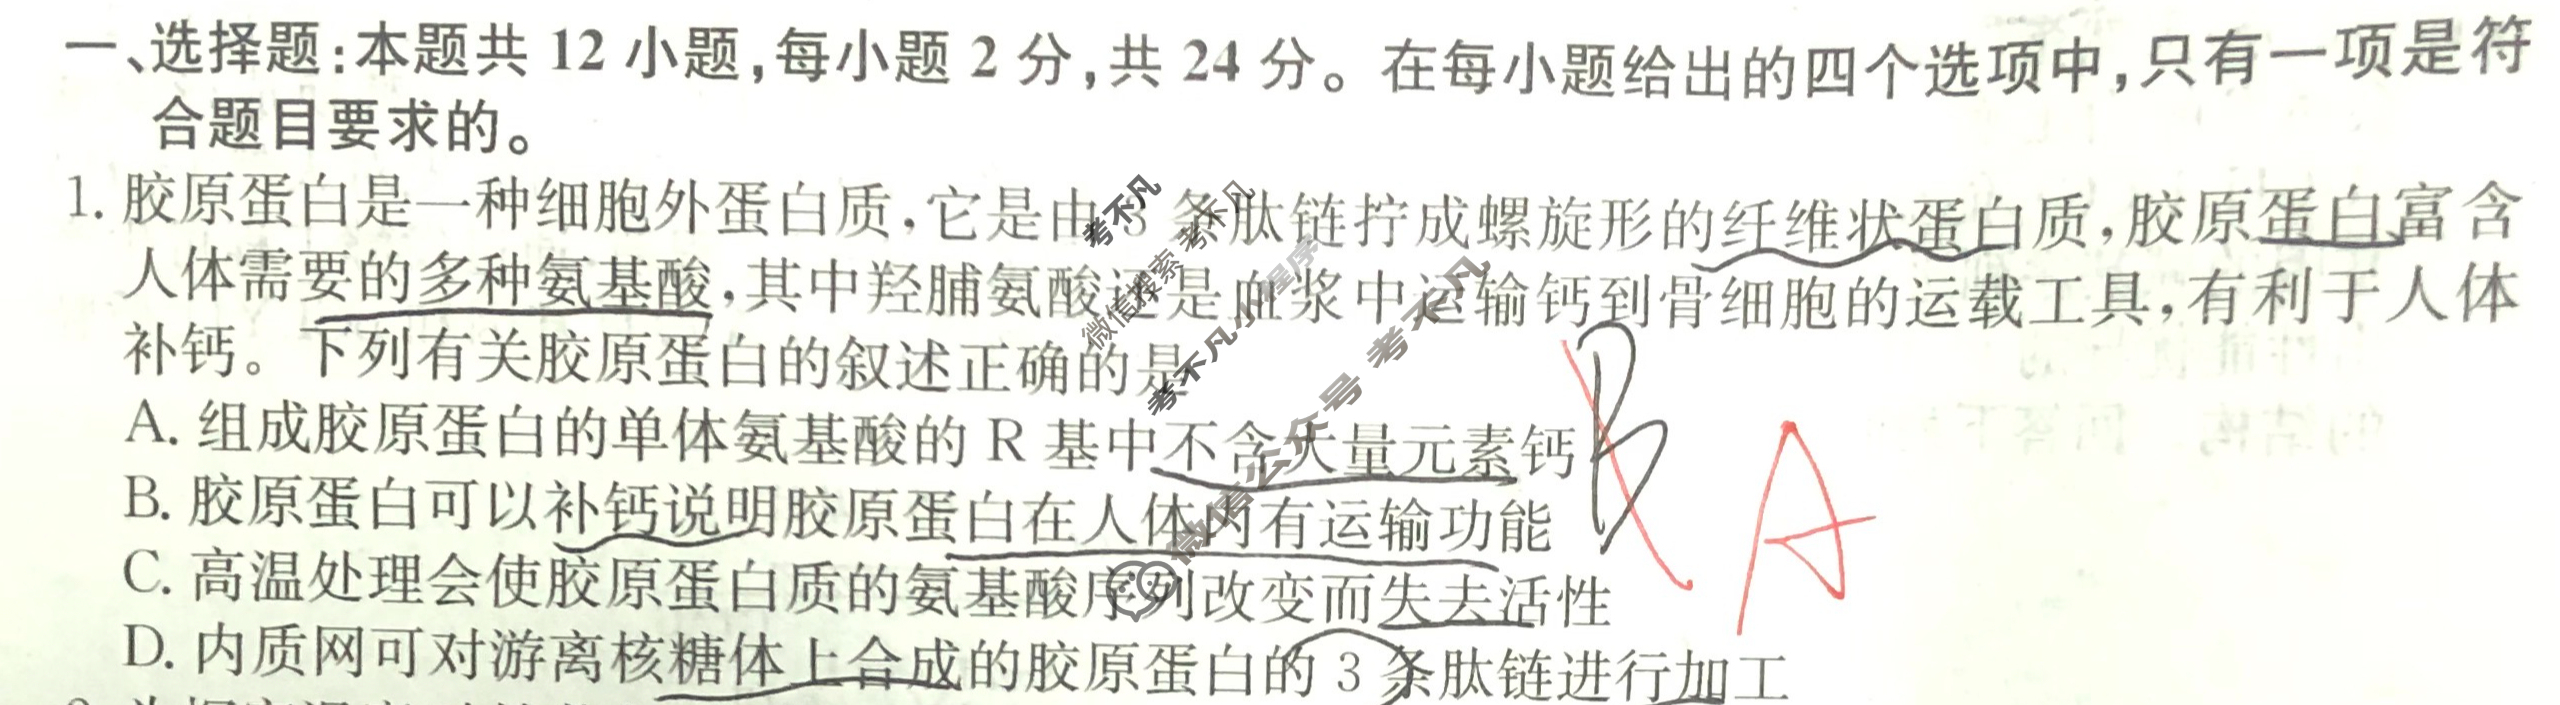 一、选择题:本题共 12 小题,每小题 2 分,共 24 分。在每小题给出的四个选项中,只有一项是符
合题目要求的。
1. 胶原蛋白是一种细胞外蛋白质,它是由 3 条肽链拧成螺旋形的纤维状蛋白质,胶原蛋白富含
人体需要的多种氨基酸,其中羟脯氨酸还是血浆中运输钙到骨细胞的运载工具,有利于人体
补钙。下列有关胶原蛋白的叙述正确的是
A. 组成胶原蛋白的单体氨基酸的 R 基中不含大量元素钙
B. 胶原蛋白可以补钙说明胶原蛋白在人体内有运输功能
C. 高温处理会使胶原蛋白质的氨基酸序列改变而失去活性
D. 内质网可对游离核糖体上合成的胶原蛋白的 3 条肽链进行加工
B
A
考不凡
微信搜索 考不凡
考不凡小程序
微信公众号 考不凡